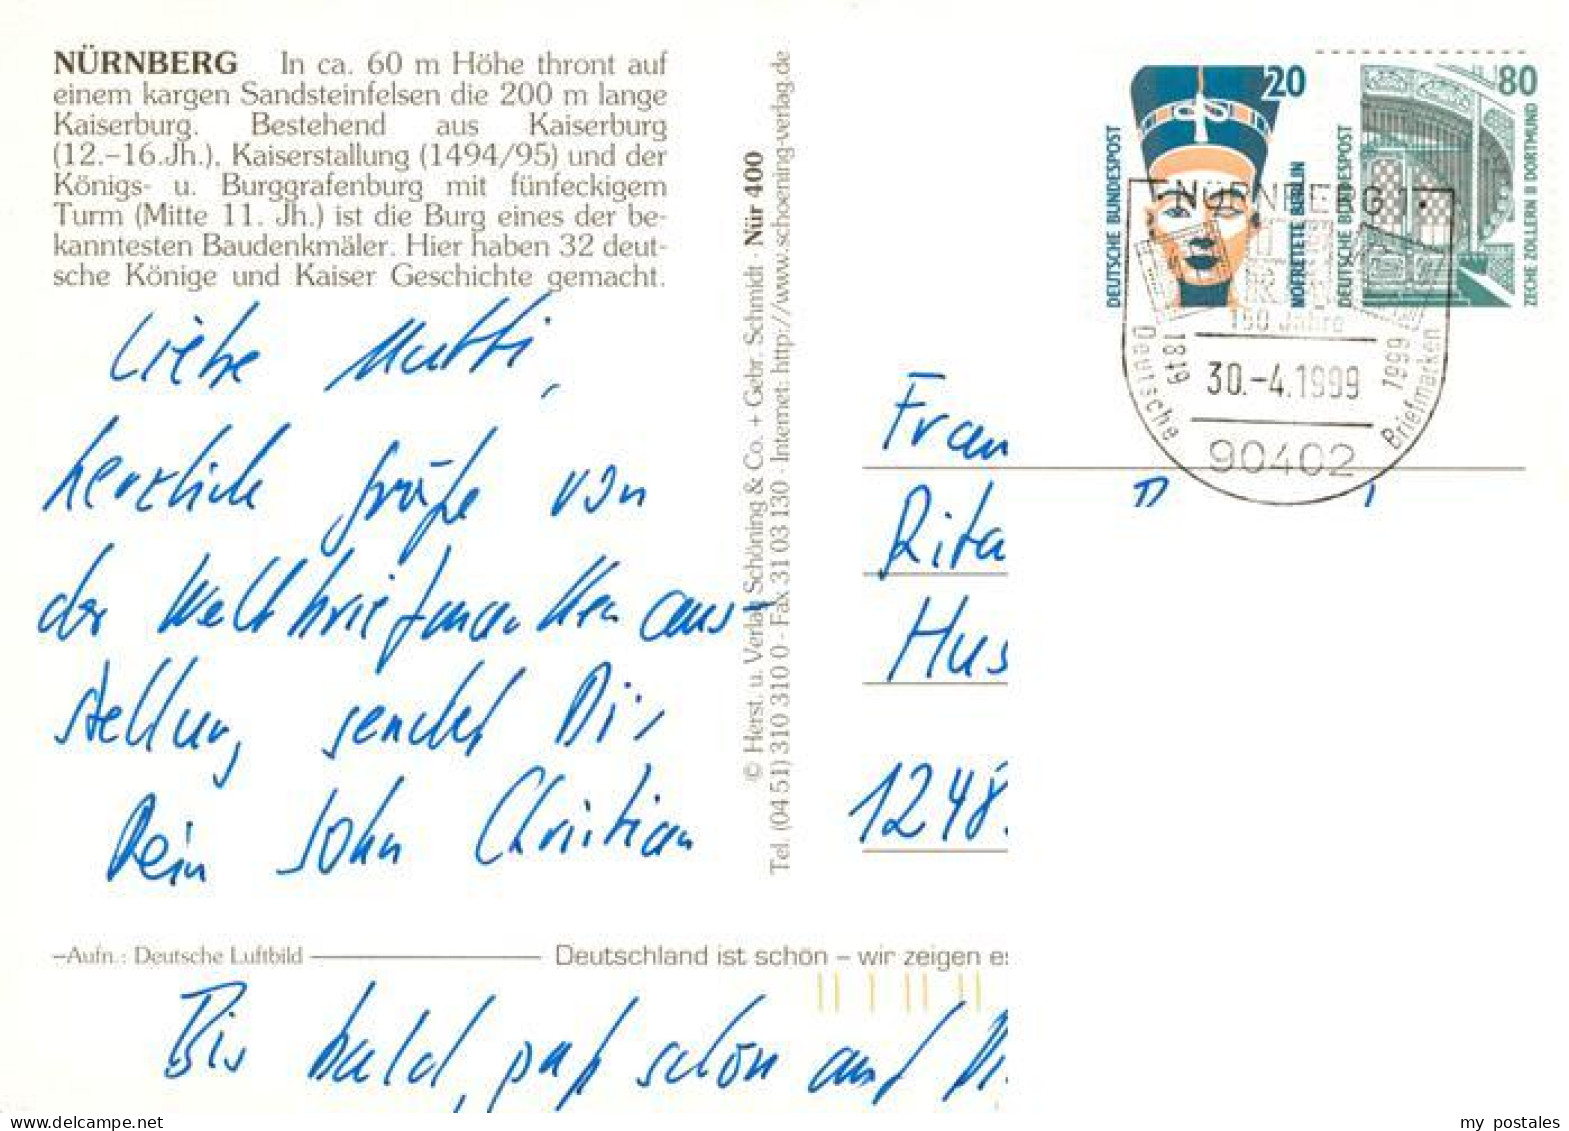 NÜRNBERG In ca. 60 m Höhe thront auf
einem kargen Sandsteinfelsen die 200 m lange
Kaiserburg. Bestehend aus Kaiserburg
(12.–16.Jh.), Kaiserstallung (1494/95) und der
Königs- u. Burggrafenburg mit fünfeckigem
Turm (Mitte 11. Jh.) ist die Burg eines der be-
kanntesten Baudenkmäler. Hier haben 32 deut-
sche Könige und Kaiser Geschichte gemacht.
Liebe Mutti,
herzliche Grüße von
der Weltbriefmarken aus-
stellung sendet Dir
Dein John Christian
–Aufn.: Deutsche Luftbild
Deutschland ist schön – wir zeigen es
Bis bald, paß schön auf Di
© Herst. u. Verlag Schöning & Co. + Gebr. Schmidt · Nür 400
Tel. (04 51) 310 310 0 · Fax 31 03 130 · Internet: http://www.schoening-verlag.de
DEUTSCHE BUNDESPOST
20
NOFRETETE BERLIN
DEUTSCHE BUNDESPOST
80
ZECHE ZOLLERN II DORTMUND
NÜRNBERG 1
150 Jahre
1849
1999
30.-4.1999
Deutsche Briefmarken
90402
Frau
Rita
Hus
1248
my postales